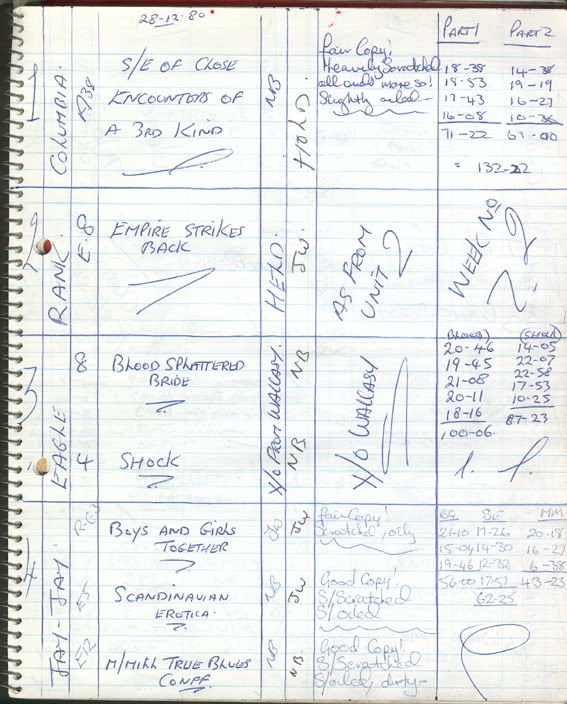 28-12-80
PART 1 PART 2
1
COLUMBIA.
S/E OF CLOSE
ENCOUNTERS OF
A 3RD KIND
NB
HOLD.
Fair Copy!
Heavily Scratched
all and more so!
Slightly oiled
18-38 14-38
18-53 19-19
17-43 16-27
16-08
71-22
132-22
2
RANK.
E.8
EMPIRE STRIKES
BACK
HELD.
JW.
AS FROM
UNIT 2
WEEK No
2.
3
EAGLE
8
BLOOD SPLATTERED
BRIDE
4
SHOCK
X/O FROM WALLASY.
NB
NB
X/O WALLASY
(BLOOD) (SHOCK)
20-46 14-05
19-45 22-07
21-08 22-58
20-11 17-53
18-16 10-25
100-06. 87-23
4
JAY-JAY
BOYS AND GIRLS
TOGETHER
JW
JW
Fair Copy!
Scratched, oily
E5
SCANDINAVIAN
EROTICA.
NB
JW
Good Copy!
S/Scratched
S/oiled
E12
M/MILL TRUE BLUES
CONFF.
NB
NB.
Good Copy!
S/Scratched
S/oiled, dirty-
BG SE MM
21-10 17-26 20-18
15-04 14-30 16-27
19-46 12-32 6-38
56-00 17-57 43-23
62-25